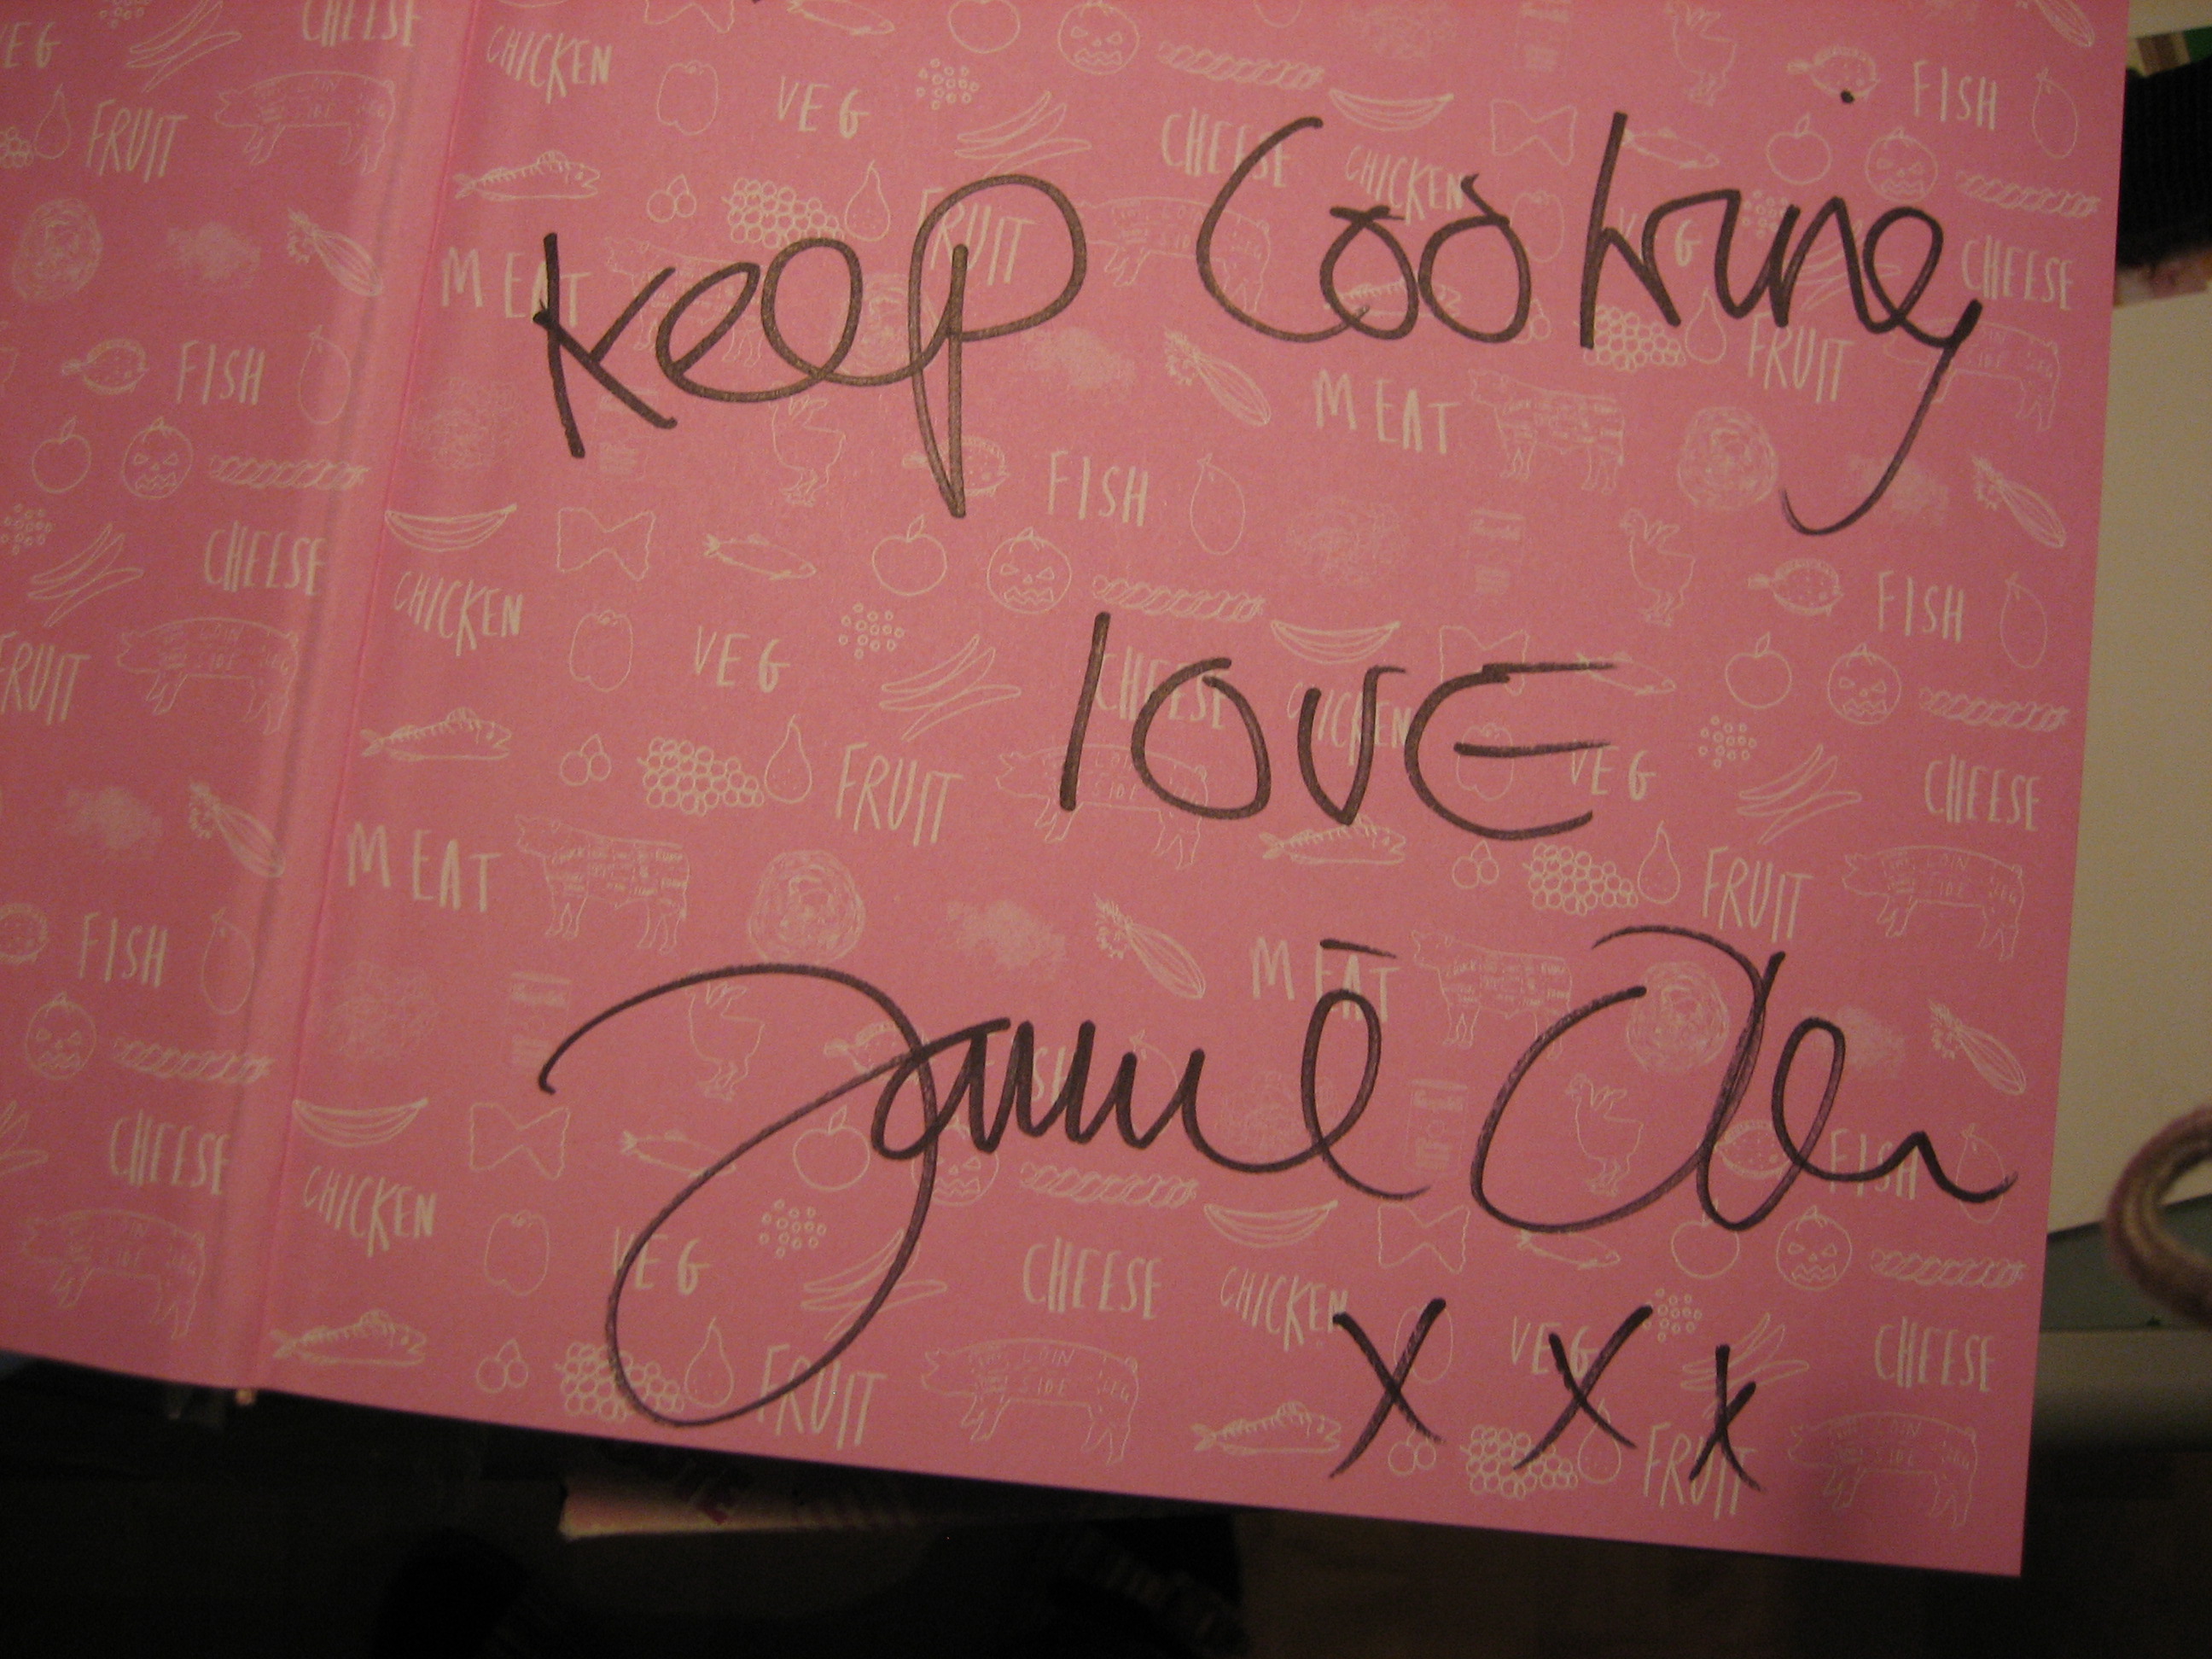 Keep Cooking
love
Jamie Oliver
x x x
VEG CHEESE CHICKEN VEG CHEESE CHICKEN FISH
FRUIT MEAT FRUIT VEG CHEESE
FISH FISH MEAT FRUIT
CHEESE CHICKEN VEG CHEESE CHICKEN VEG FISH
FRUIT MEAT FRUIT FRUIT CHEESE
FISH MEAT FISH
CHEESE CHICKEN VEG CHEESE CHICKEN VEG CHEESE
FRUIT FRUIT
LOIN
SIDE
LEG